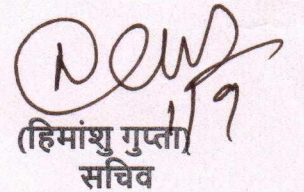 1/9
(हिमांशु गुप्ता)
सचिव